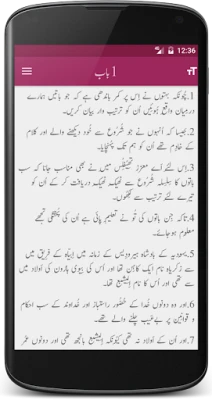 12:36
1 باب
1.چونکہ بہتوں نے اِس پر کمر باندھی ہے کہ جو باتیں ہمارے
درمیان واقع ہوئیں اُن کو ترتیب وار بیان کریں۔
2.جیسا کہ اُنہوں نے جو شرُوع سے خُود دیکھنے والے اور کلام
کے خادِم تھے اُن کو ہم تک پہنچایا۔
3.اِس لِئے اَے معزز تھِیُفِلُس میں نے بھی مناسب جانا کہ سب
باتوں کا سِلسِلہ شرُوع سے ٹھِیک ٹھِیک دریافت کر کے اُن کو
تیرے لِئے ترتیب سے لکھُوں۔
4.تاکہ جِن باتوں کی تُو نے تعلِیم پائی ہے اُن کی پُختگی تُجھے
معلُوم ہو جائے۔
5.یہودیہ کے بادشاہ ہیرودیس کے زمانہ میں ابِیّاہ کے فرِیق میں
سے زکریاہ نام ایک کاہِن تھا اور اُس کی بیوی ہارُون کی اَولاد میں
سے تھی اور اُس کا نام اِلیشِبَع تھا۔
6.اور وہ دونوں خُدا کے حضُور راستباز اور خُداوند کے سب احکام
و قوانِین پر بے عَیب چلنے والے تھے۔
7.اور اُن کے اَولاد نہ تھی کیونکہ اِلیشِبَع بانجھ تھی اور دونوں عُمر